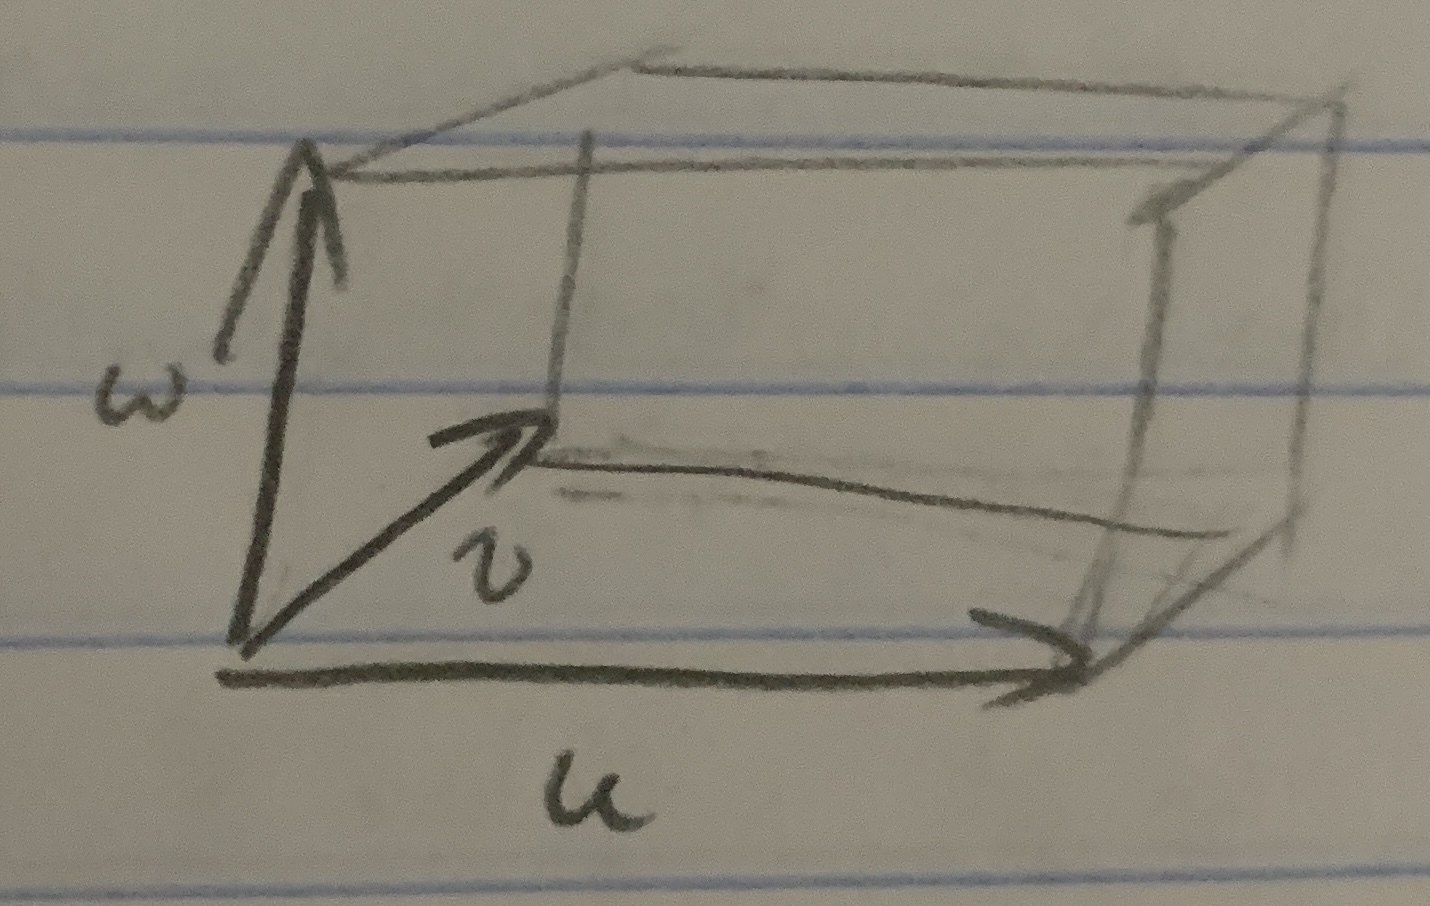 w
v
u